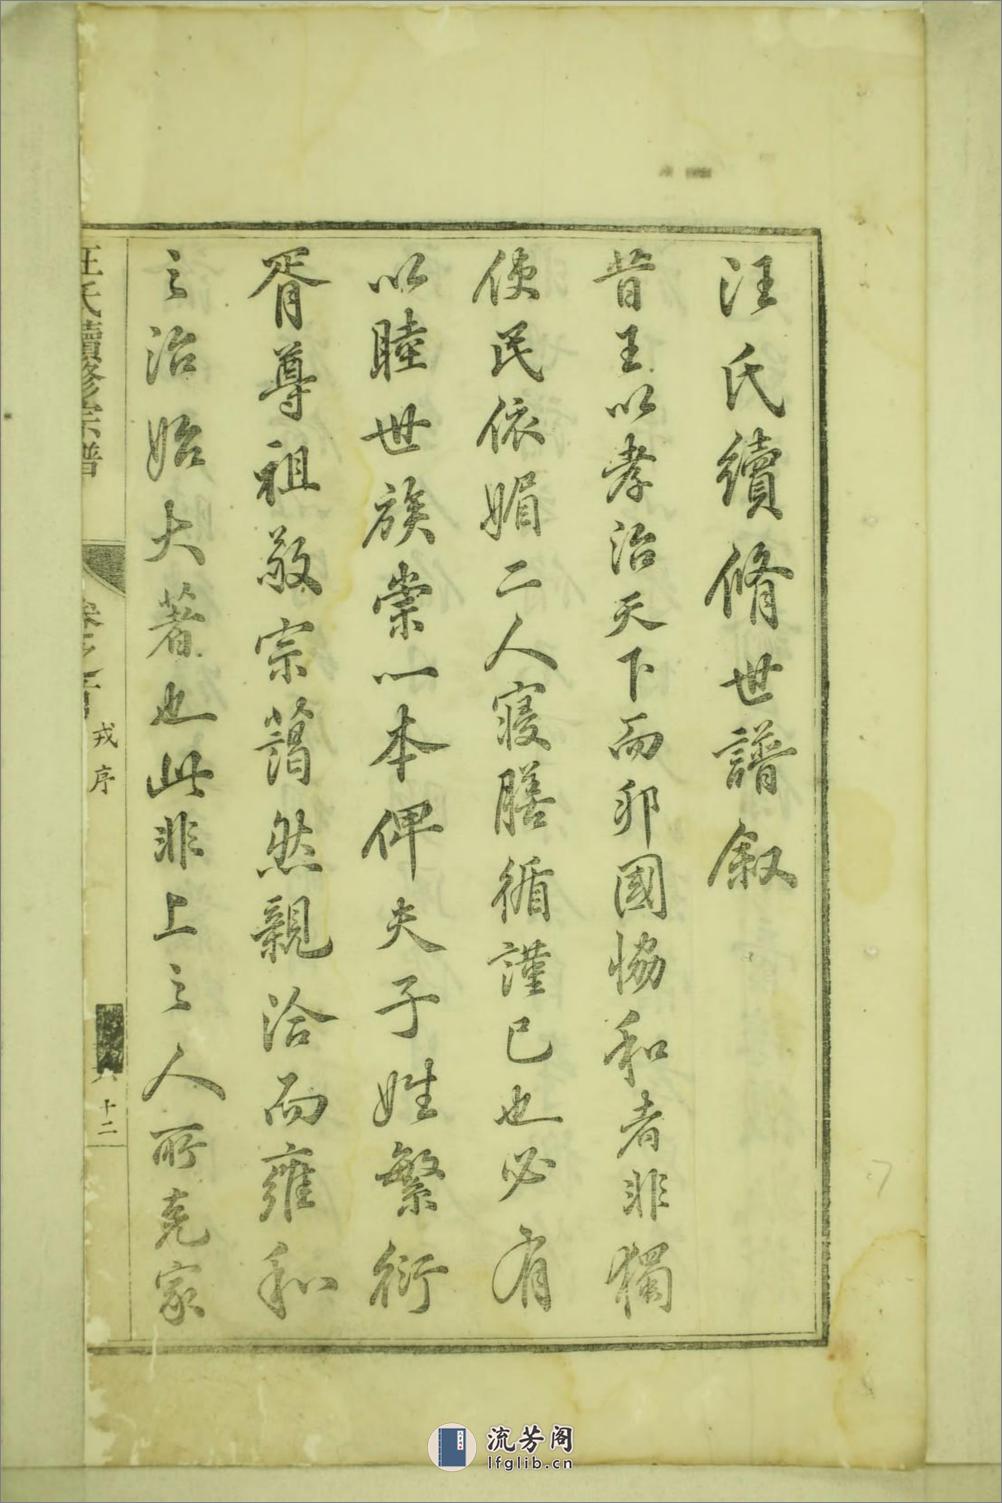 汪氏續脩世譜叙
昔王以孝治天下而邦國恊和者非獨
使民依媚二人寝膳循謹已也必有
以睦世族崇一本俾夫子姓繁衍
胥尊祖敬宗藹然親洽而雍和
之治始大著也此非上之人所克家
汪氏續修宗譜
卷之首
戎序
十二
流芳阁
lfglib.cn